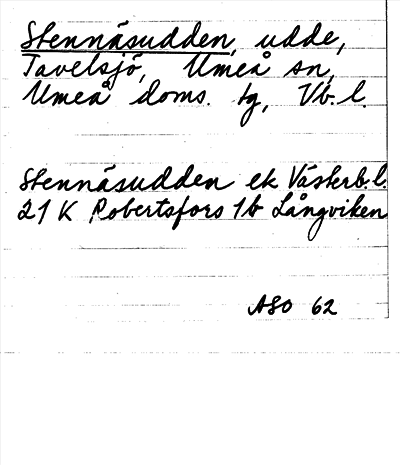 Stennäsudden, udde,
Tavelsjö, Umeå sn,
Umeå doms. tg, Vb. l.
Stennäsudden ek Västerb. l.
21 K Robertsfors 1b Långviken
ASO 62